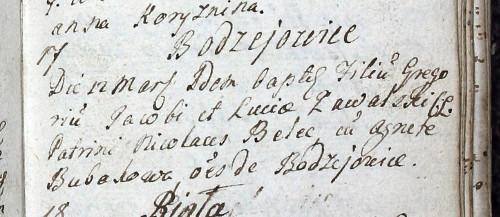 anna Korycznina.
17 Bodzejowice
Die 12 Mart Idem baptis Filiũ Grego
riũ Jacobi et Luciæ Zawalski C:L:
Patrini Nicolaus Belec cũ Agnete
Bubakowa oẽs de Bodzejowice.
18 Biała